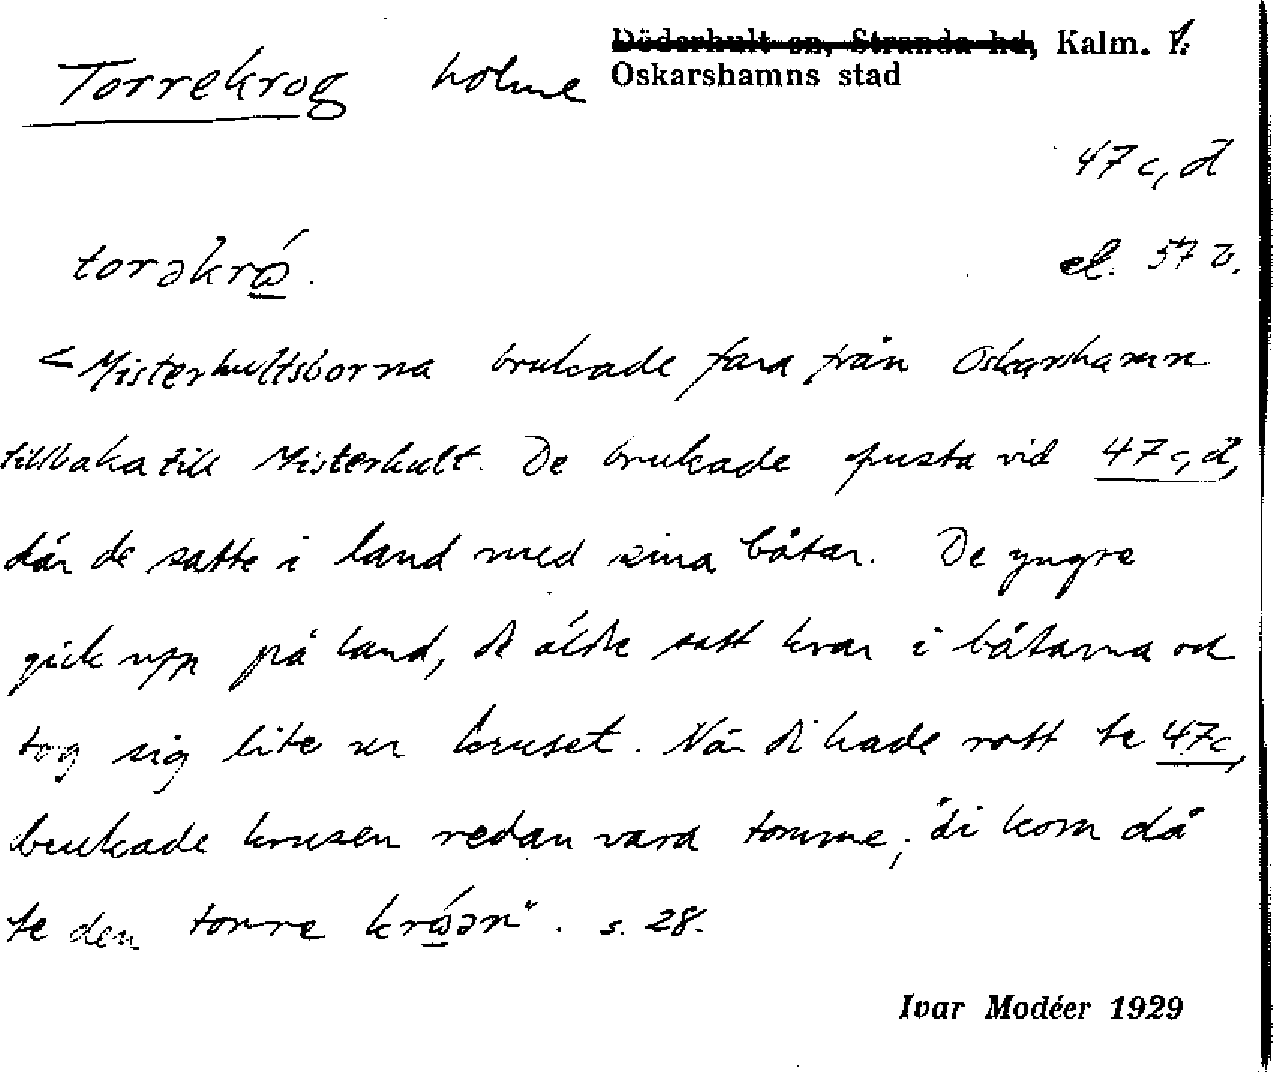 Döderhult sn, Stranda hd, Kalm. l.
Torrekrog holme Oskarshamns stad
47 c, d
torəkrǫ́. el. 57 v.
< Misterhultsborna brukade fara från Oskarshamn
tillbaka till Misterhult. De brukade pusta vid 47 c, d,
där de satte i land med sina båtar. De yngre
gick upp på land, de äldre satt kvar i båtarna och
tog sig lite ur kruset. När di hade rott te 47c,
brukade krusen redan vara tomme; "di kom då
te den torre krǫ́ən". s. 28.
Ivar Modéer 1929